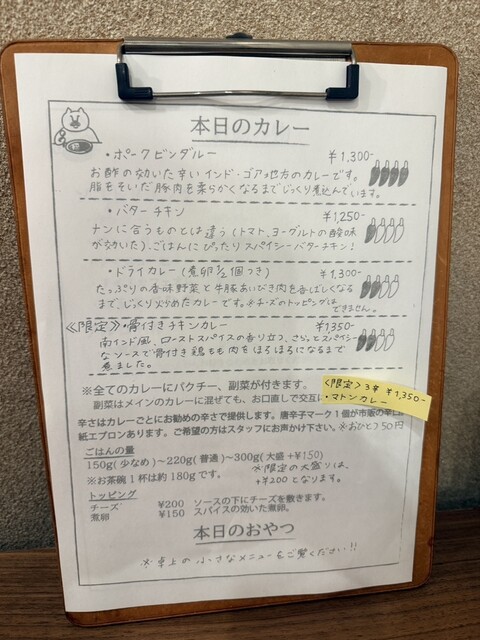 本日のカレー
・ポークビンダルー ¥1,300-
お酢の効いた辛いインド・ゴア地方のカレーです。
脂をそいだ豚肉を柔らかくなるまでじっくり煮込んでいます。
・バターチキン ¥1,250-
ナンに合うものとは違う(トマト、ヨーグルトの酸味
が効いた)、ごはんにぴったりスパイシーバターチキン!
・ドライカレー(煮卵½個つき) ¥1,300-
たっぷりの香味野菜と牛豚あいびき肉を香ばしくなる
まで、じっくり炒めたカレーです。※チーズのトッピングは
できません。
《限定》・骨付きチキンカレー ¥1350-
南インド風、ローストスパイスの香り立つ、さらっとスパイシー
なソースで骨付き鶏もも肉をほろほろになるまで
煮ました。
※全てのカレーにパクチー、副菜が付きます。
副菜はメインのカレーに混ぜても、お口直しで交互に
《限定》3辛 ¥1,350-
・マトンカレー
辛さはカレーごとにお勧めの辛さで提供します。唐辛子マーク1個が市販の辛口
紙エプロンあります。ご希望の方はスタッフにお声かけ下さい。※おひとつ50円
ごはんの量
150g(少なめ)~220g(普通)~300g(大盛+¥150)
※お茶碗1杯は約180gです。
※限定の大盛りは、
+¥200となります。
トッピング
チーズ ¥200 ソースの下にチーズを敷きます。
煮卵 ¥150 スパイスの効いた煮卵。
本日のおやつ
※卓上の小さなメニューをご覧ください!!